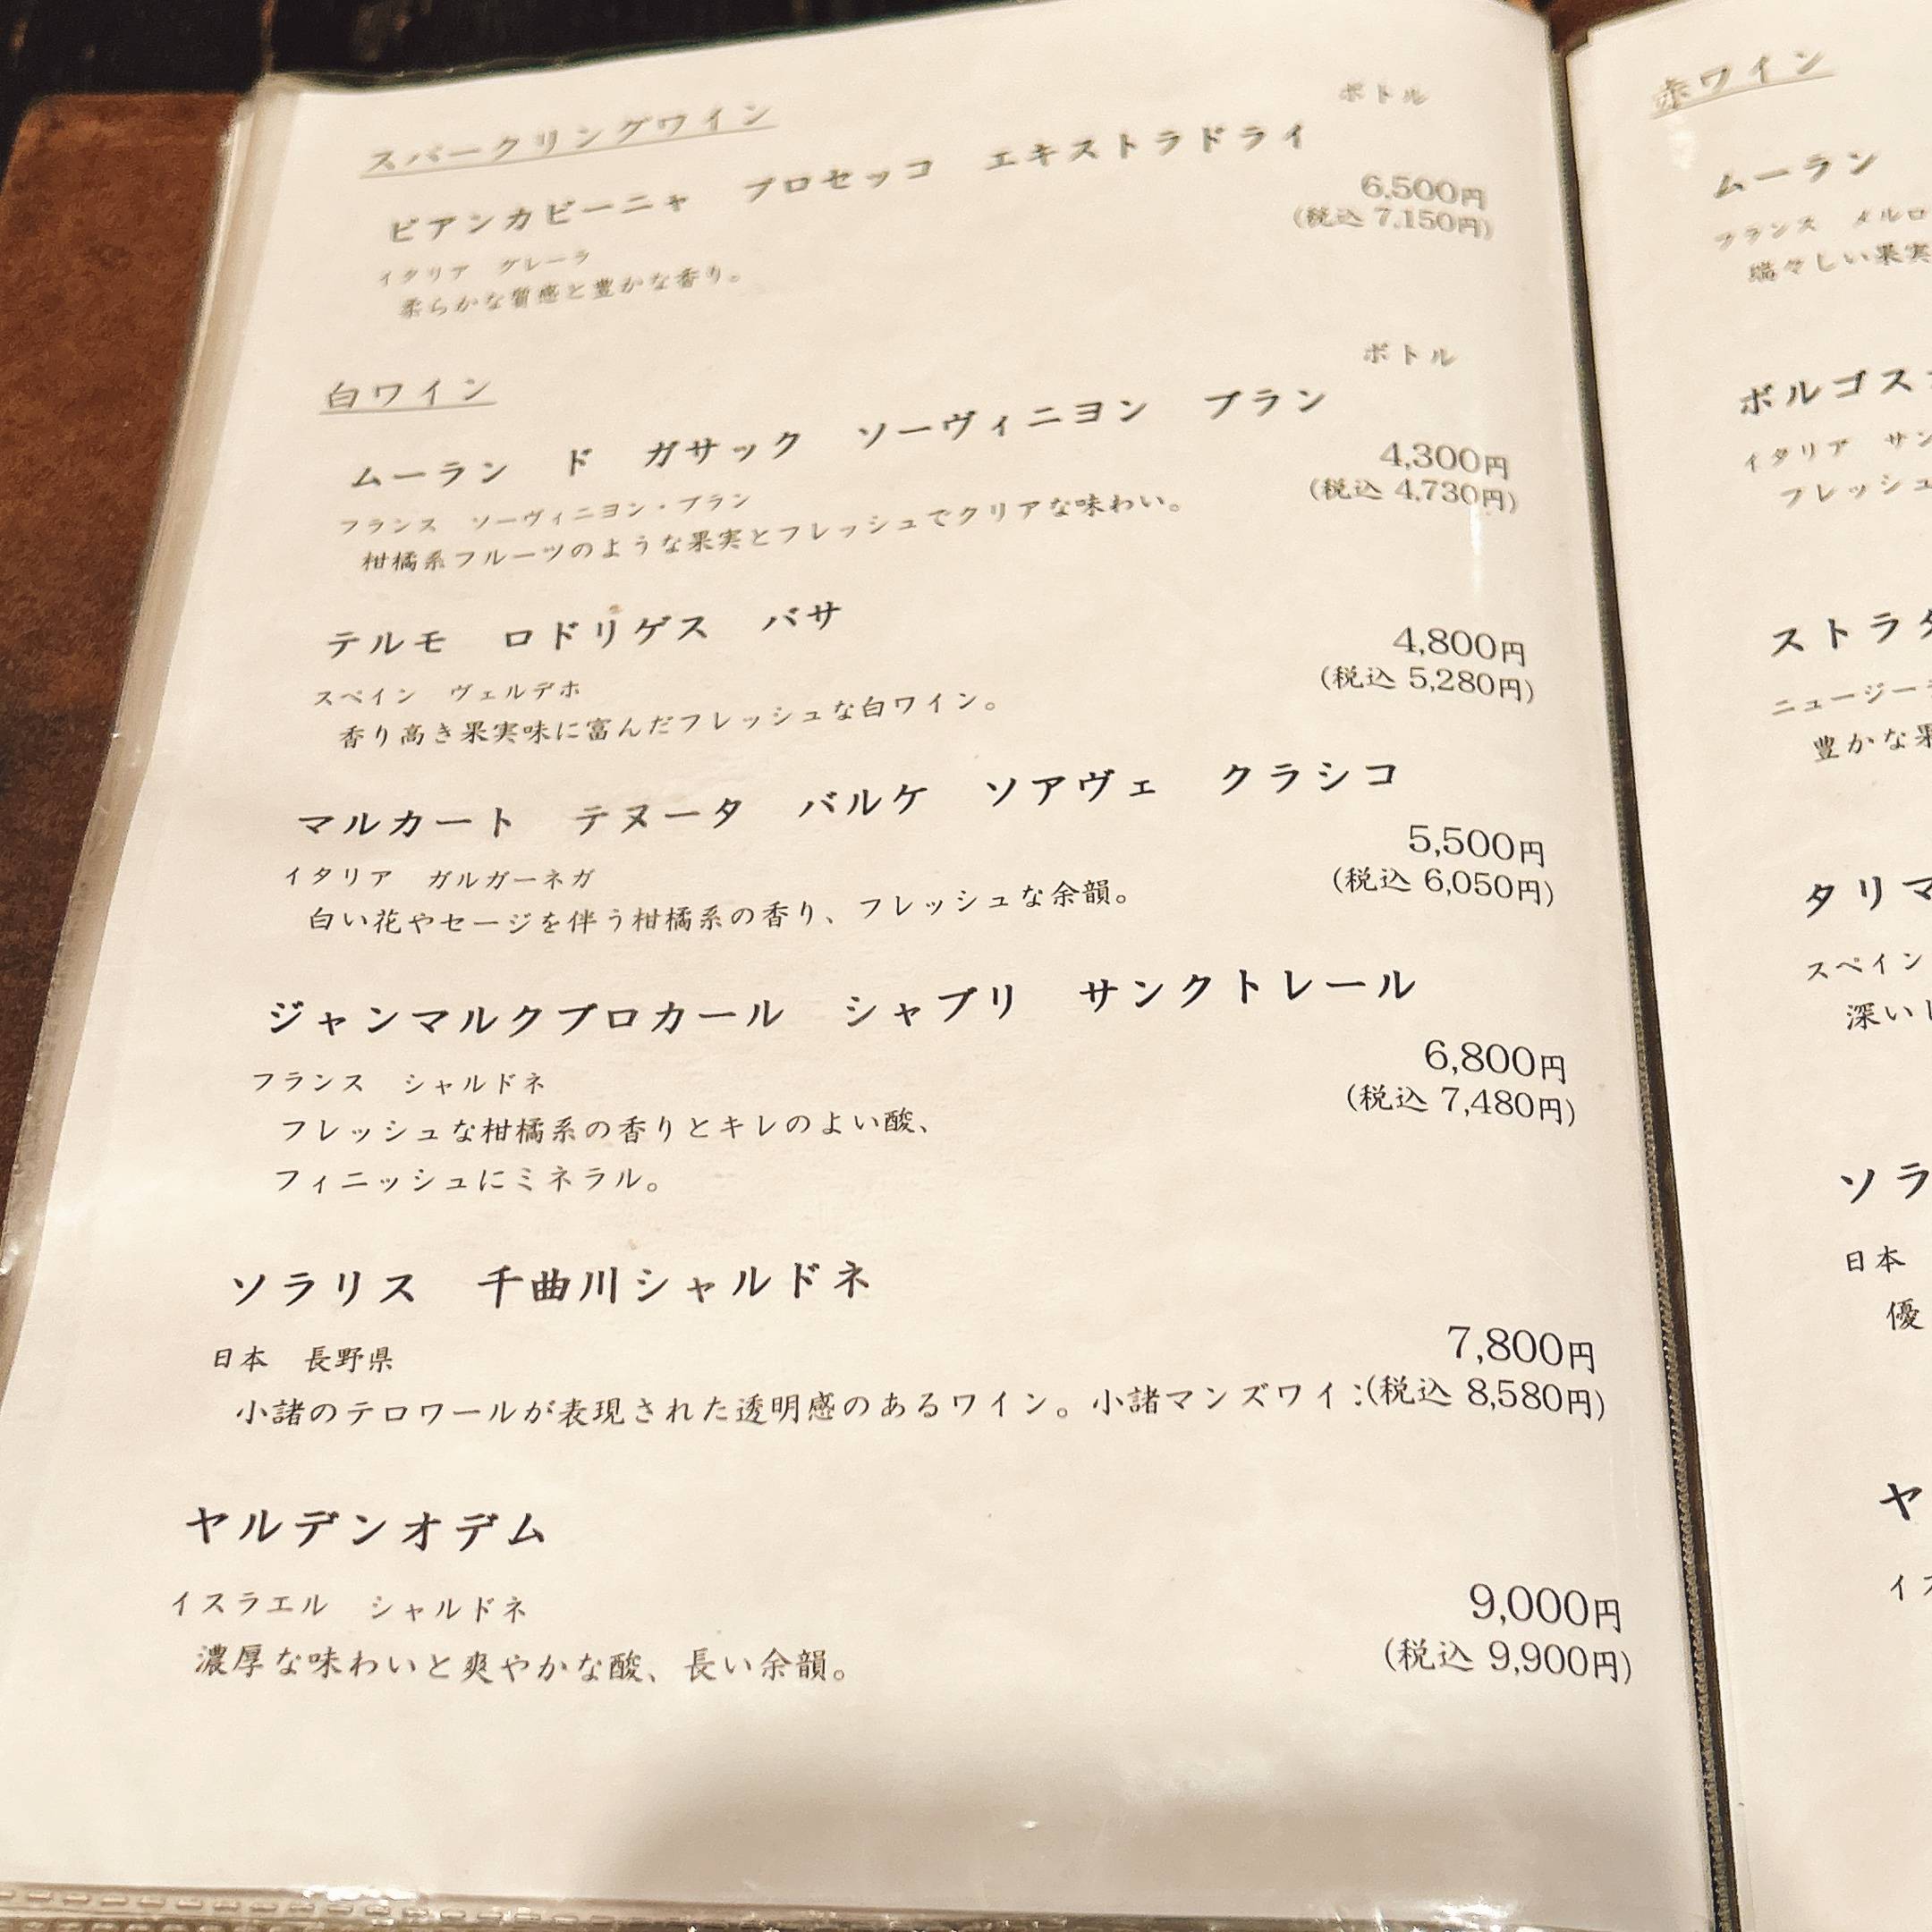 スパークリングワイン
ボトル
ビアンカビーニャ　プロセッコ　エキストラドライ
6,500円
(税込 7,150円)
イタリア　グレーラ
柔らかな質感と豊かな香り。
白ワイン
ボトル
ムーラン　ド　ガサック　ソーヴィニヨン　ブラン
4,300円
(税込 4,730円)
フランス　ソーヴィニヨン・ブラン
柑橘系フルーツのような果実とフレッシュでクリアな味わい。
テルモ　ロドリゲス　バサ
4,800円
(税込 5,280円)
スペイン　ヴェルデホ
香り高き果実味に富んだフレッシュな白ワイン。
マルカート　テヌータ　バルケ　ソアヴェ　クラシコ
5,500円
(税込 6,050円)
イタリア　ガルガーネガ
白い花やセージを伴う柑橘系の香り、フレッシュな余韻。
ジャンマルクブロカール　シャブリ　サンクトレール
6,800円
(税込 7,480円)
フランス　シャルドネ
フレッシュな柑橘系の香りとキレのよい酸、
フィニッシュにミネラル。
ソラリス　千曲川シャルドネ
7,800円
日本　長野県
小諸のテロワールが表現された透明感のあるワイン。小諸マンズワイ
(税込 8,580円)
ヤルデンオデム
9,000円
イスラエル　シャルドネ
(税込 9,900円)
濃厚な味わいと爽やかな酸、長い余韻。
赤ワイン
ムーラン
フランス　メルロ
瑞々しい果実
ボルゴス
イタリア　サン
フレッシュ
ストラタ
ニュージー
豊かな果
タリマ
スペイン
深い
ソラ
日本
優
ヤ
イス